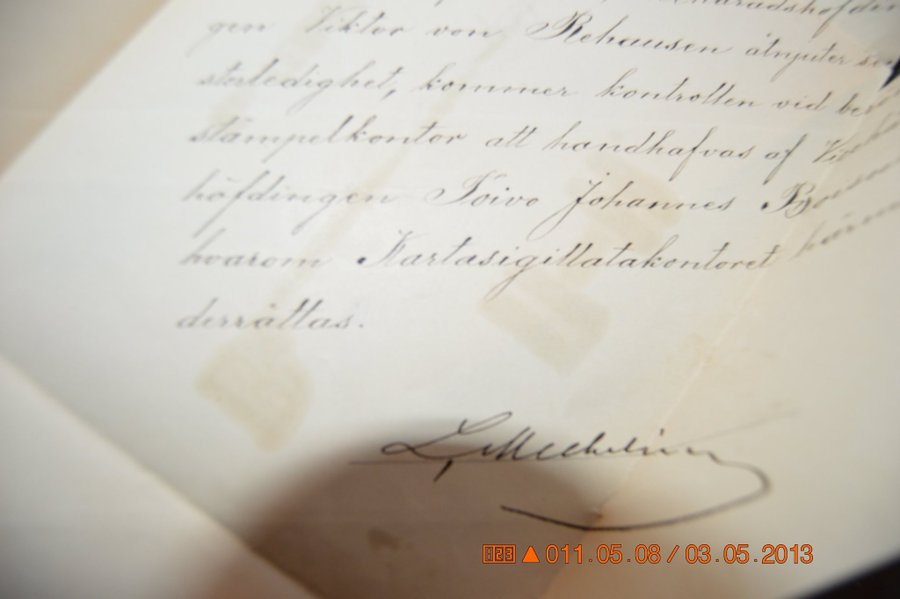 gen Viktor von Rehausen åtnjuter
storledighet, kommer kontrollen vid
stämpelkontor att handhafvas af
höfdingen Toivo Johannes
hvarom Kartasigillatakontoret härm
derrättas.
L. Mechelin
011.05.08 / 03.05.2013